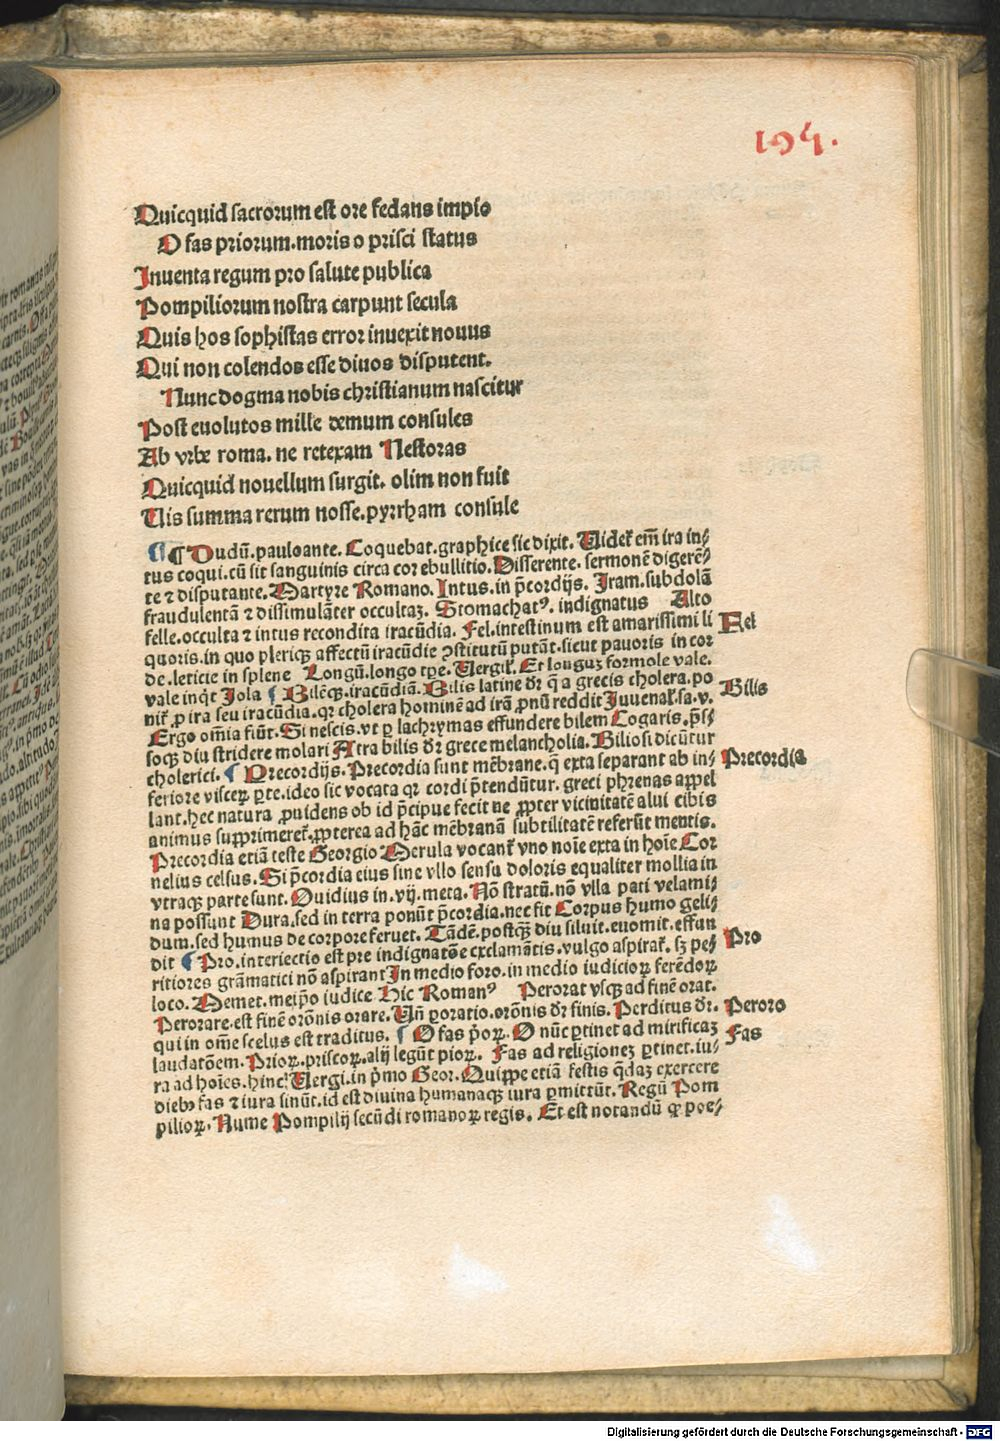 194.
Quicquid sacrorum est ore fedans impio
O fas priorum. moris o prisci status
Inuenta regum pro salute publica
Pompiliorum nostra carpunt secula
Quis hos sophistas error inuexit nouus
Qui non colendos esse diuos disputent.
Nunc dogma nobis christianum nascitur
Post euolutos mille demum consules
Ab vrbe roma. ne retexam Nestoras
Quicquid nouellum surgit. olim non fuit
Uis summa rerum nosse. pyrrham consule
¶ ¶ Dudū. pauloante. Coquebat. graphice sic dixit. Uidet͛ em̄ ira in⸗
tus coqui. cū sit sanguinis circa cor ebullitio. Disserente. sermonē digerē⸗
te ⁊ disputante. Martyre Romano. Intus. in p̄cordijs. Iram. subdolā
fraudulentā ⁊ dissimulāter occultaꝫ. Stomachatꝰ. indignatus Alto
felle. occulta ⁊ intus recondita iracūdia. Fel. intestinum est amarissimi li
Fel
quoris. in quo pleriqꝫ affectū iracūdie ꝯstitutū putāt. sicut pauoris in cor
de. leticie in splene Longū. longo tp̄e. Uergil͛. Et longuꝫ formose vale.
vale inqͥt Iola ¶ Bilēqꝫ. iracūdiā. Bilis latine dr̄ q̄ a grecis cholera. po
Bilis
nit͛ ꝓ ira seu iracūdia. qꝛ cholera hominē ad irā ꝓnū reddit Juuenal͛. sa. v.
Ergo om̄ia fiūt. Si nescis. vt ꝑ lachrymas effundere bilem Cogaris. p̄s⸗
soqꝫ diu stridere molari Atra bilis dr̄ grece melancholia. Biliosi dicūtur
cholerici. ¶ Precordijs. Precordia sunt mēbrane. q̄ exta separant ab in⸗
Precordia
feriore visceꝝ ꝑte. ideo sic vocata qꝛ cordi p̄tendūtur. greci phrenas appel
lant. hec natura ꝓuidens ob id p̄cipue fecit ne ꝓpter vicinitatē alui cibis
animus supprimeret͛. ꝓpterea ad hāc mēbranā subtilitatē referūt mentis.
Precordia etiā teste Georgio Merula vocant͛ vno noīe exta in hoīe Cor
nelius celsus. Si p̄cordia eius sine vllo sensu doloris equaliter mollia in
vtraqꝫ parte sunt. Ouidius in. vij. meta. Nō stratū. nō vlla pati velami⸗
na possunt Dura. sed in terra ponūt p̄cordia. nec fit Corpus humo geli⸗
dum. sed humus de corpore feruet. Tādē. postqꝫ̄ diu siluit. euomit. effun
dit ¶ Pro. interiectio est pre indignatōe exclamātis. vulgo aspirat͛. sꝫ pe⸗
Pro
ritiores grāmatici nō aspirant In medio foro. in medio iudicioꝝ ferēdoꝝ
loco. Memet. meip̄o iudice Hic Romanꝰ Perorat vsqꝫ ad finē orat.
Perorare. est finē orōnis orare. Un̄ ꝑoratio. orōnis dr̄ finis. Perditus dr̄.
Peroro
qui in om̄e scelus est traditus. ¶ O fas p̓oꝝ. O nūc ꝑtinet ad mirificaꝫ
Fas
laudatōem. Prioꝝ. priscoꝝ. alij legūt pioꝝ. Fas ad religionez ꝑtinet. iu⸗
ra ad hoīes. hinc Uergi. in p̓mo Geor. Quippe etiā festis q̄daꝫ exercere
diebꝫ fas ⁊ iura sinūt. id est diuina humanaqꝫ iura ꝑmittūt. Regū Pom
pilioꝝ. Nume Pompilij secūdi romanoꝝ regis. Et est notandū ꝙ poe⸗
Digitalisierung gefördert durch die Deutsche Forschungsgemeinschaft - DFG